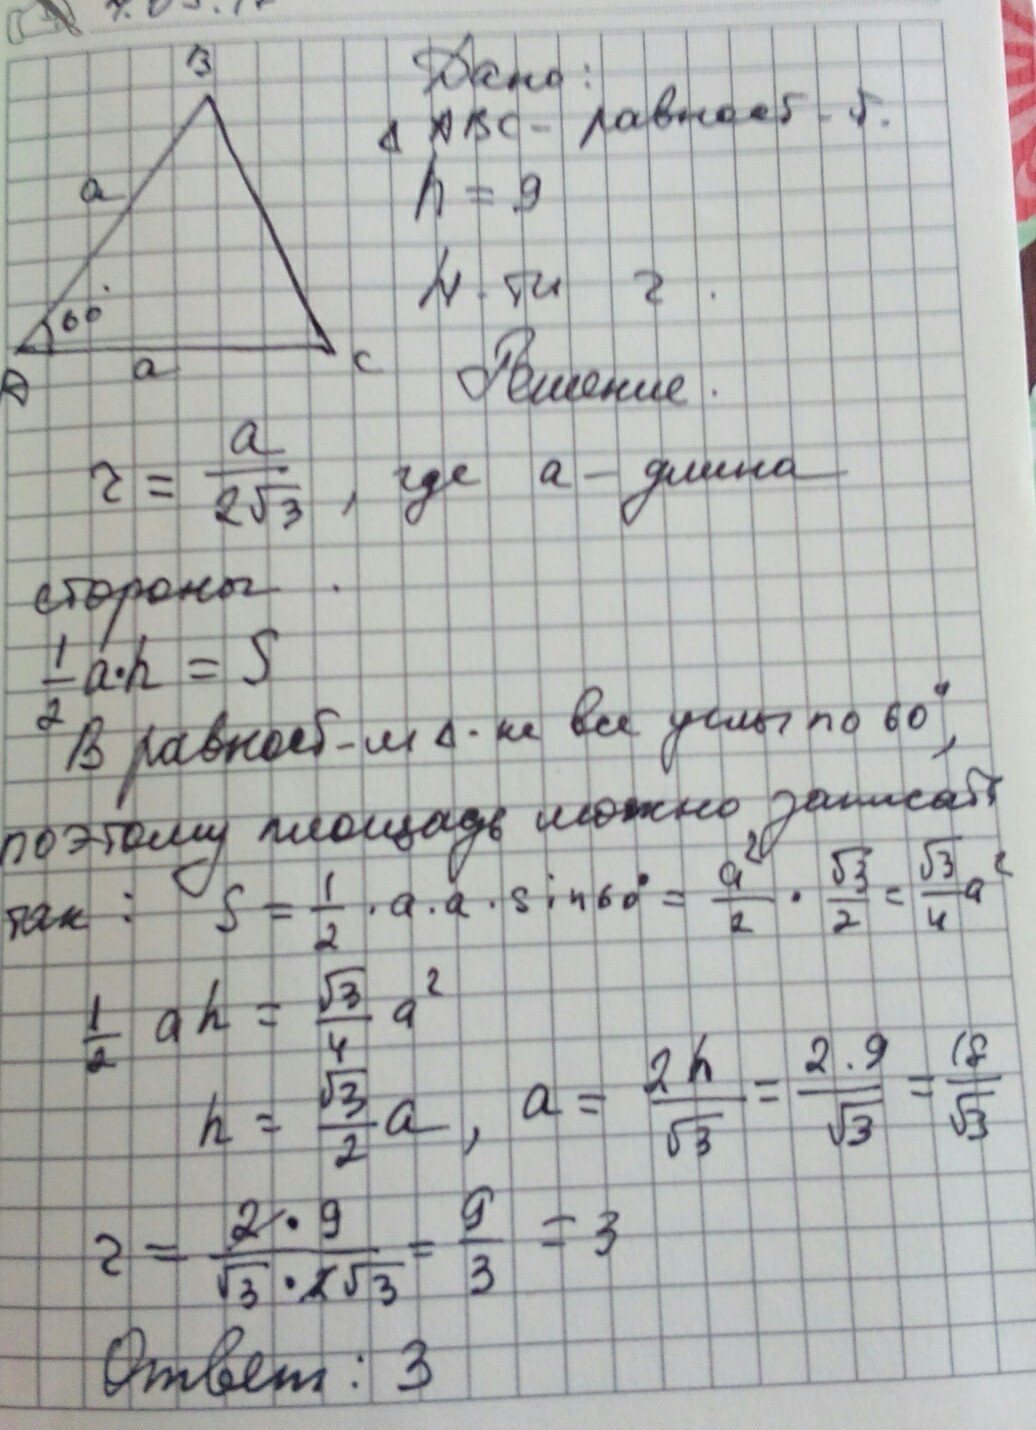 B
a
60°
A
a
C
Дано:
Δ ABC - равност - г.
h = 9
Н-ти r.
Решение.
r = a / 2√3, где a - длина
стороны.
1/2 a·h = S
В равност-м Δ-ке все углы по 60°,
поэтому площадь можно записать
так: S = 1/2 · a · a · sin 60° = a²/2 · √3/2 = √3/4 a²
1/2 ah = √3/4 a²
h = √3/2 a, a = 2h/√3 = 2·9/√3 = 18/√3
r = 2·9 / √3·2√3 = 9/3 = 3
Ответ: 3